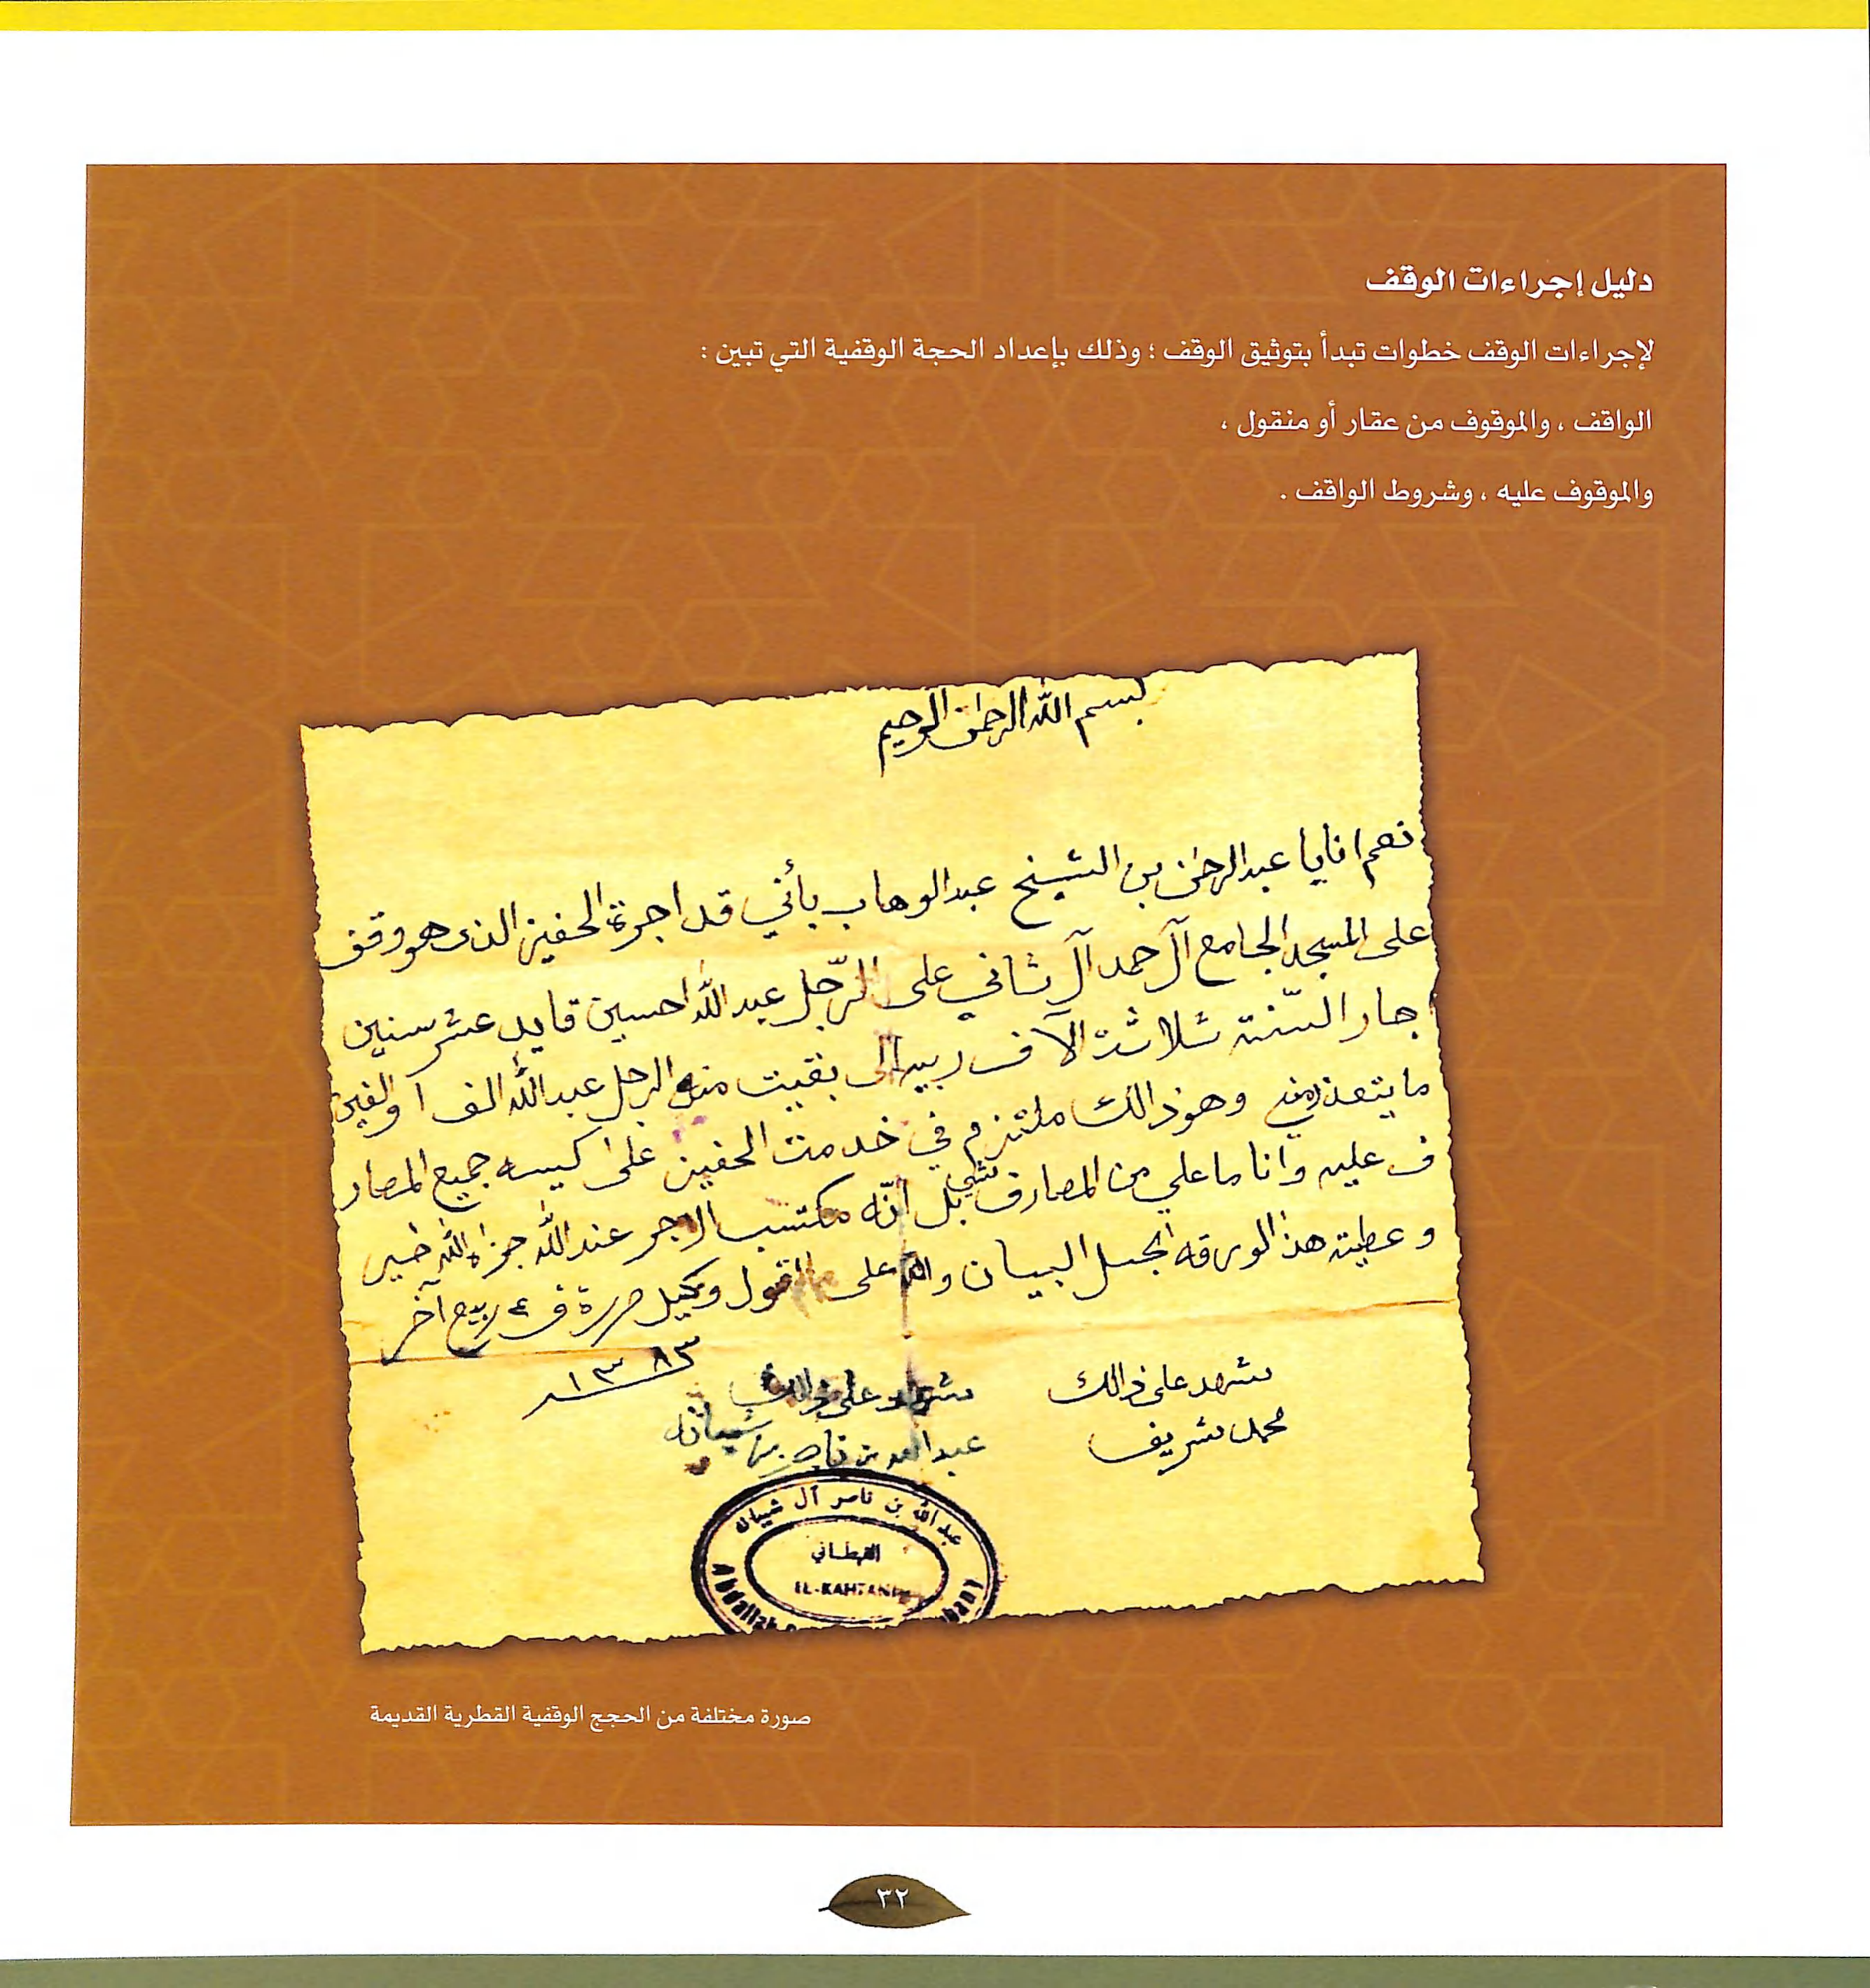 دليل إجراءات الوقف
لإجراءات الوقف خطوات تبدأ بتوثيق الوقف ؛ وذلك بإعداد الحجة الوقفية التي تبين :
الواقف ، والموقوف من عقار أو منقول ،
والموقوف عليه ، وشروط الواقف .
بسم الله الرحمن الرحيم
نعم انايا عبدالرحمن بن الشيخ عبدالوهاب بأني قد اجرة الحفيز الذي هو وقف
على المسجد الجامع آل حمد آل ثاني على الرّجل عبدالله احسين قايد عشر سنين
جار السّنة ثلاثة الآف ربيه بقيت الرجل عبدالله الف
ما يتعذر وهو ذالك ملتزم في خدمت الحفيز على كيسه جميع المصار
ف عليه وانا ما علي من المصارف شي بل انّه مكتسب الاجر عند الله جزاه الله خير
وعطيته هذا الورقه الجل البيان والله على ما اقول وكيل حررة في ٤ ربيع آخر
١٣٨٣
شهد على ذالك
محمد شريف
شهد على ذالك
عبدالله بن ناصر بن شيبانه
عبدالله بن ناصر آل شيبانه
القحطاني
EL-KAHTANI
Abdallah
صورة مختلفة من الحجج الوقفية القطرية القديمة
٣٢